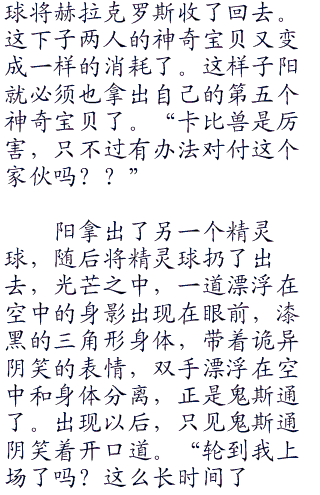 球将赫拉克罗斯收了回去。
这下子两人的神奇宝贝又变
成一样的消耗了。这样子阳
就必须也拿出自己的第五个
神奇宝贝了。“卡比兽是厉
害，只不过有办法对付这个
家伙吗？？”
阳拿出了另一个精灵
球，随后将精灵球扔了出
去，光芒之中，一道漂浮在
空中的身影出现在眼前，漆
黑的三角形身体，带着诡异
阴笑的表情，双手漂浮在空
中和身体分离，正是鬼斯通
了。出现以后，只见鬼斯通
阴笑着开口道。“轮到我上
场了吗？这么长时间了